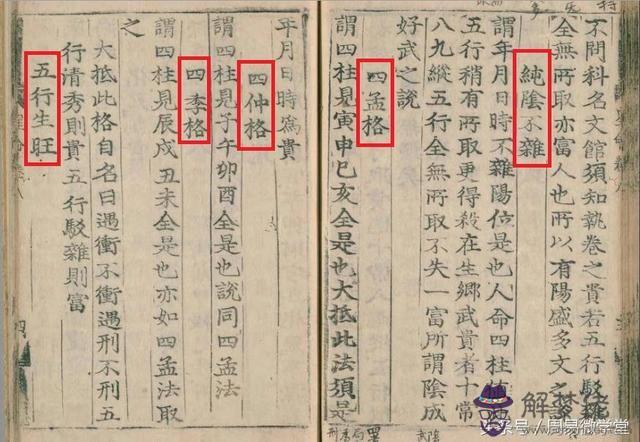 不問科名文館須知執卷之貴若五行駁雜
全無所取亦富人也所以有陽盛多文之
純陰不雜
謂年月日時不雜陽位是也人命四柱値
五行稍有所取更得殺在生鄉武貴者十常
八九縱五行全無所取不失一富所謂陰成
好武之說
四孟格
謂四柱見寅申巳亥全是也大抵此法須是
年月日時寫貴
四仲格
謂四柱見子午卯酉全是也說同四孟格
四季格
謂四柱見辰戌丑未全是也亦如四孟法取
之
大抵此格自名曰遇衝不衝遇刑不刑五
行清秀則貴五行駁雜則富
五行生旺
解夢佬
周易微學堂